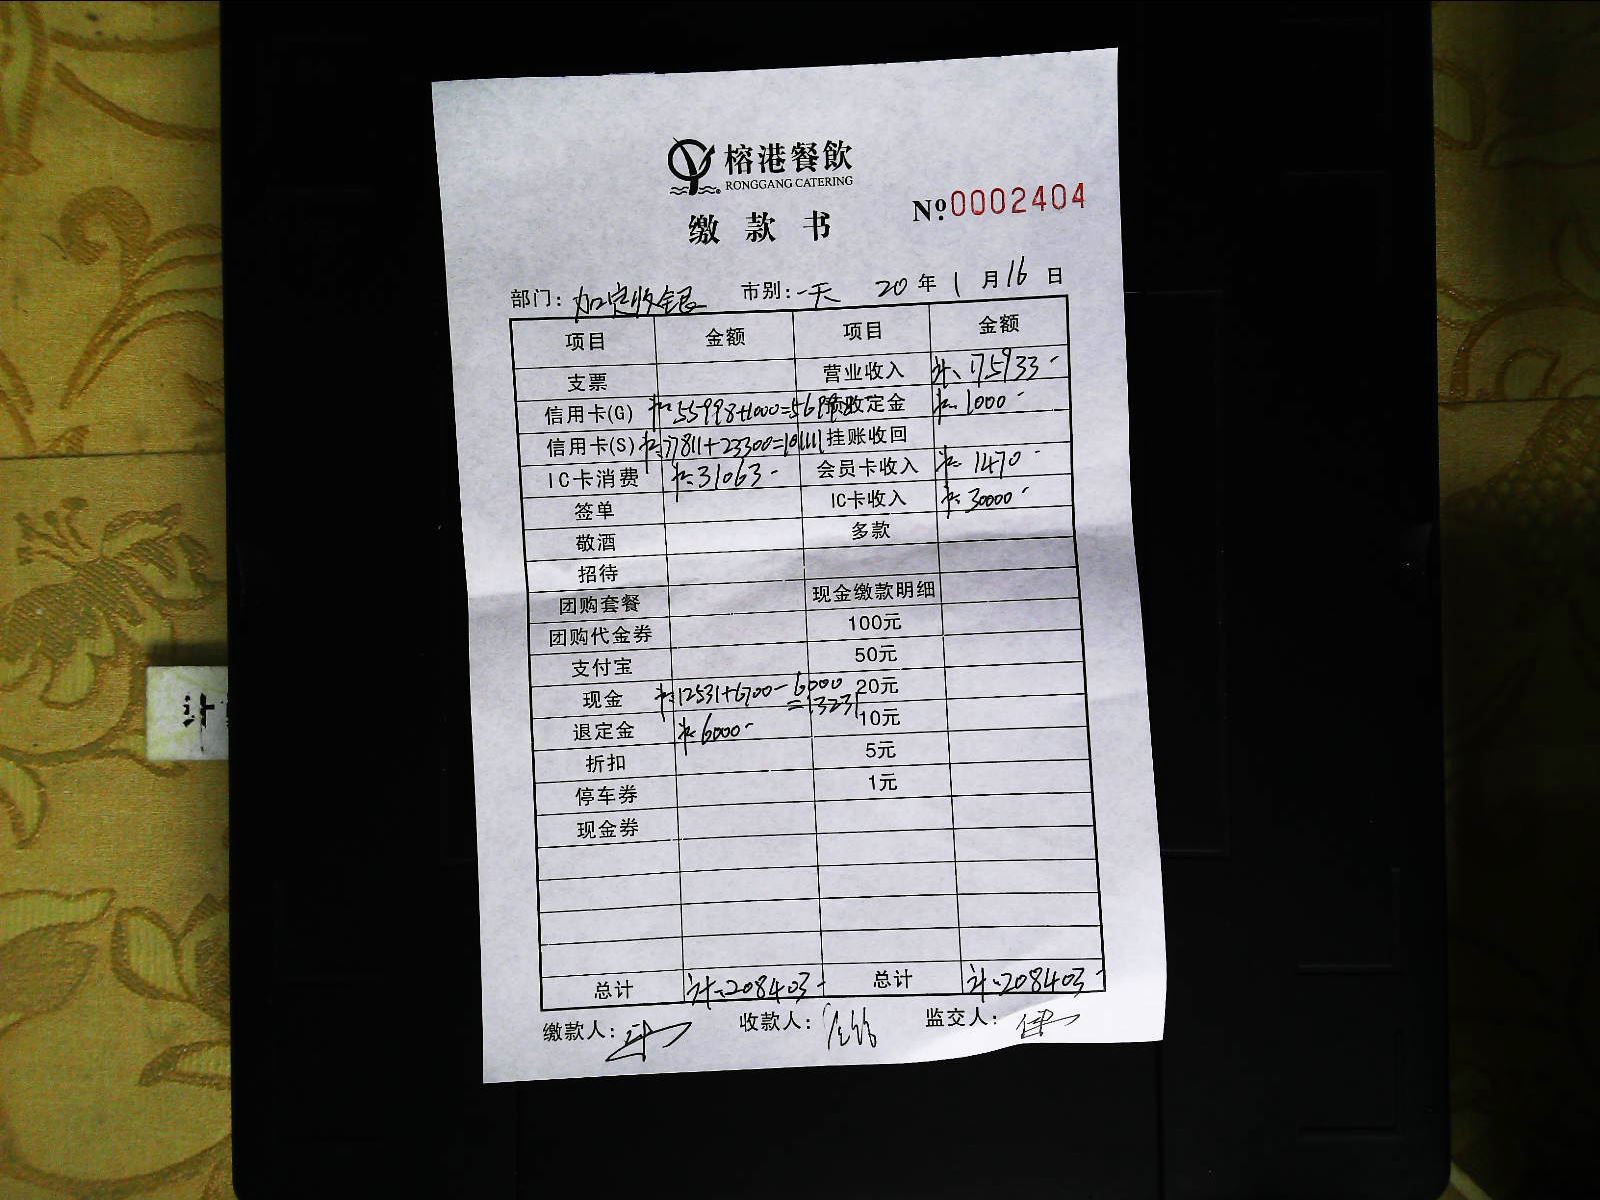 榕港餐飲
RONGGANG CATERING
缴款书
№.0002404
部门：加定收银 市别：一天 20年1月16日
项目 金额 项目 金额
支票 营业收入 计：175933-
信用卡(G) 计：55998+1000=56998 预收定金 计：1000-
信用卡(S) 计：77811+23300=101111 挂账收回
IC卡消费 计：31063- 会员卡收入 计：1470-
签单 IC卡收入 计：30000-
敬酒 多款
招待
团购套餐 现金缴款明细
团购代金券 100元
支付宝 50元
现金 计：12531+6700-6000=13231 20元
退定金 计：6000- 10元
折扣 5元
停车券 1元
现金券
总计 计：208403- 总计 计：208403-
缴款人： 收款人： 监交人：
计